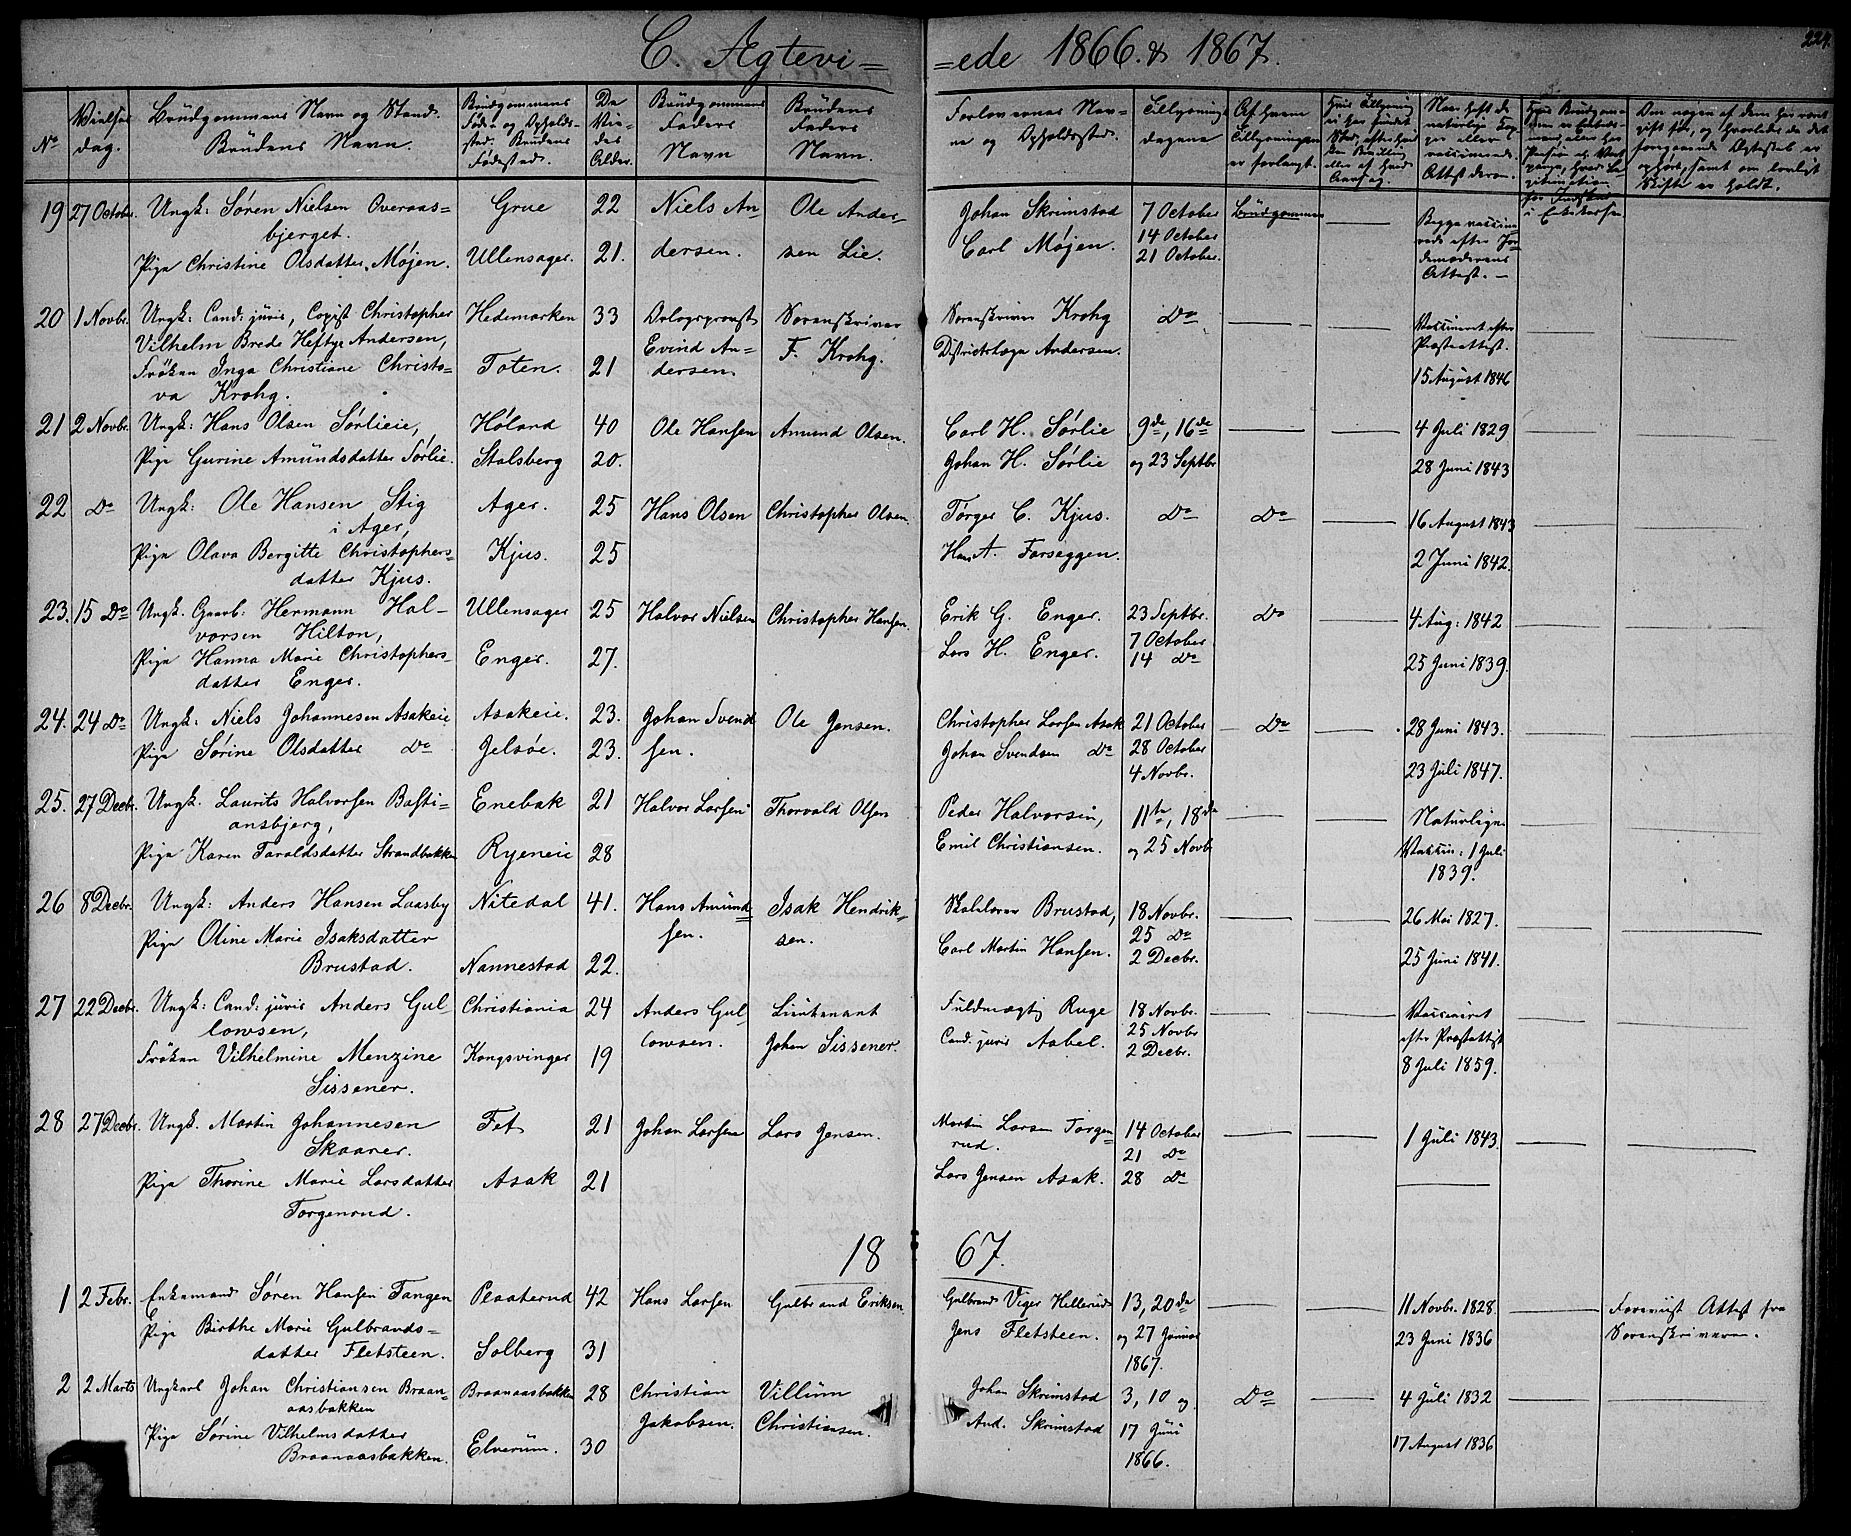 C. Ægtevi=
=ede 1866. & 1867.
224.
No
Vielses
dag.
Brudgommens Navn og Stand.
Brudens Navn.
Brudgommens
Føde- og Opholds-
sted. Brudens
Fødested.
De
Vie-
des
Alder.
Brudgommens
Faders
Navn
Brudens
Faders
Navn.
Forlovernes Nav-
ne og Opholdssted.
Tillysnings-
dagene
Af hvem
Tillysningen
er forlangt.
19 27 Octobr. Ungk: Søren Nielsen Overaas= Grue 22 Niels An Ole Ander= Johan Skrimstad 7 October Brudgommen
bjerget.
14 October
Bægge vaccine
Pige Christine Olsdatter, Møjen. Ullensager. 21. dersen. sen Lie. Carl Møjen. 21 October.
Attest. —
20 1 Novbr. Ungk: Cand: juris, Copist Christopher Hedemarken 33 Dalogsprovst Sorenskriver Sorenskriver Krohg Do Vaccineret efter
Vilhelm Brede Heftye Andersen, Evind An= F. Krohg. Districtslæge Andersen. Præsteattest.
Frøken Inga Christiane Christo= Toten. 21 dersen. 15 August 1846
va Krohg.
21 2 Novbr. Ungk: Hans Olsen Sørlieie, Høland 40 Ole Hansen Amund Olsen. Carl H. Sørlie 9de, 16de 4 Juli 1829
Pige Gurine Amundsdatter Sørlie. Stalsberg 20. Johan H. Sørlie og 23 Septbr 28 Juni 1843
22 Do Ungk: Ole Hansen Stig Ager. 25 Hans Olsen Christopher Olsen. Torger C. Kjus. Do Do 16 August 1843
i Ager,
Pige Olava Bergitte Christophers= Kjus. 25 Hans A. Farseggen. 2 Juni 1842.
datter Kjus.
23. 15 Do Ungk. Gaarb: Hermann Hal- Ullensager 25 Halvor Nielsen Christopher Hansen. Erik G. Enger. 23 Septbr. Do 4 Aug: 1842
vorsen Hilton, 7 October
Pige Hanna Marie Christophers- Enger. 27. Lars H. Enger. 14 Do 25 Juni 1839.
datter Enger.
24. 24 Do Ungk: Niels Johannesen Asakeie Asakeie. 23. Johan Svend Ole Jensen. Christopher Larsen Asak 21 October Do 28 Juni 1843.
Pige Sørine Olsdatter Do Gelsøe. 23. sen. Johan Svendsen Do 28 October
4 Novbr. 23 Juli 1847.
25. 27 Decbr. Ungk. Laurits Halvorsen Basti- Enebak 21 Halvor Larsen Thorvald Olsen Peder Halvorsen, 11te, 18de Naturlige
ansbjerg,
Pige Karen Taraldsdatter Strandbakken Ryeneie 28 Emil Christiansen. og 25 Novb Vaccin: 1 Juli
1839.
26 8 Decbr. Ungk: Anders Hansen Laasby Nitedal 41. Hans Amund= Isak Hendrik= Skolelærer Brustad, 18 Novbr. 26 Mai 1827.
Pige Oline Marie Isaksdatter sen. sen. 25 Do
Brustad. Nannestad 22. Carl Martin Hansen. 2 Decbr. 25 Juni 1841.
27 22 Decbr. Ungk: Cand: juris Anders Gul Christiania 24 Anders Gul Lieutenant Fuldmægtig Ruge 18 Novbr. Vaccineret
lowsen, lowsen. Johan Sissener. Cand. juris Aabel. 25 Novbr efter Præsteattest
Frøken Vilhelmine Menzine Kongsvinger 19 2 Decbr. 8 Juli 1859.
Sissener.
28 27 Decbr. Ungk. Martin Johannesen Fet 21 Johan Larsen Lars Jensen. Martin Larsen Torgen= 14 October 1 Juli 1843.
Skaarer. rud. 21 Do
Pige Thorine Marie Larsdatter Asak 21 Lars Jensen Asak. 28 Do
Torgenrud.
18 67.
1 2 Febr. Enkemand Søren Hansen Tangen Plaaterud 42 Hans Larsen Gulbrand Eriksen Gulbrand Viger Hellerud 13, 20de 11 Novbr. 1828. Forevist Attest fra
Pige Birthe Marie Gulbrands= Jens Fletsteen. og 27 Januar 23 Juni 1836 Sorenskriveren.
datter Fletsteen. Solberg 31 1867.
2 2 Marts Ungkarl Johan Christiansen Braan= Braanaasbakken 28 Christian Villum Johan Skrimstad 3, 10 og Do 4 Juli 1832
aasbakken Jakobsen. Christiansen. And. Skrimstad 17 Juni
Pige Sørine Vilhelmsdatter Elverum. 30 1866. 17 August 1836
Braanaasbakken.